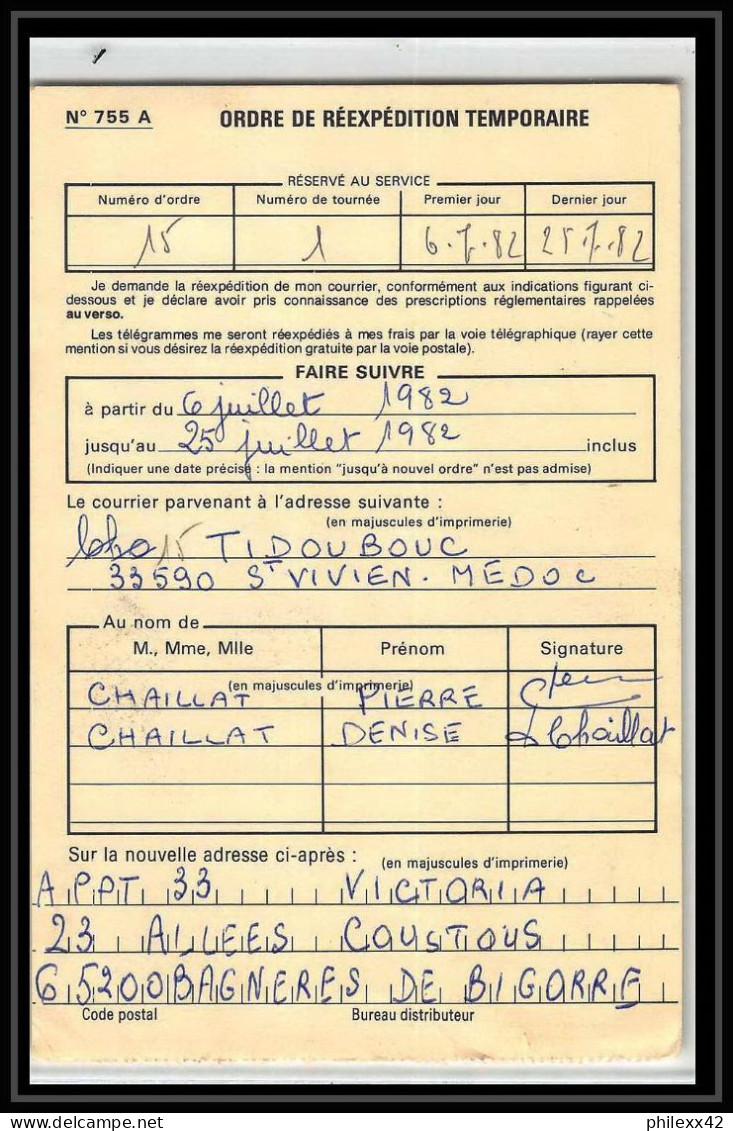 N° 755 A ORDRE DE RÉEXPÉDITION TEMPORAIRE
RÉSERVÉ AU SERVICE
Numéro d'ordre Numéro de tournée Premier jour Dernier jour
15 1 6.7.82 25.7.82
Je demande la réexpédition de mon courrier, conformément aux indications figurant ci-
dessous et je déclare avoir pris connaissance des prescriptions réglementaires rappelées
au verso.
Les télégrammes me seront réexpédiés à mes frais par la voie télégraphique (rayer cette
mention si vous désirez la réexpédition gratuite par la voie postale).
FAIRE SUIVRE
à partir du 6 juillet 1982
jusqu'au 25 juillet 1982 inclus
(Indiquer une date précise : la mention "jusqu'à nouvel ordre" n'est pas admise)
Le courrier parvenant à l'adresse suivante :
(en majuscules d'imprimerie)
15 TIDOUBOUC
33590 ST VIVIEN. MEDOC
Au nom de
M., Mme, Mlle Prénom Signature
(en majuscules d'imprimerie)
CHAILLAT PIERRE
CHAILLAT DENISE D Chaillat
Sur la nouvelle adresse ci-après : (en majuscules d'imprimerie)
APPT 33 VICTORIA
23 ALLEES COUSTOUS
65200 BAGNERES DE BIGORRE
Code postal Bureau distributeur
philexx42